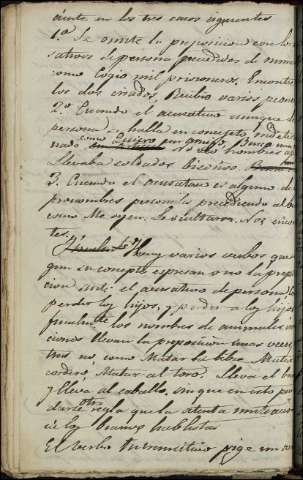 en los tres casos siguientes
1.ª Se omite la preposicion con los acu
sativos de persona precedidos de nume
como Cogio mil prisioneros. Encontre
los dos criados. Recibio varios
2.º Cuando el acusativo aunque de
persona halla en concepto indeter
nado como Quiero un amigo. Busco
hombres
Llevaba soldados bisoños.
3. Cuando el acusativo es alguno de
pronombres personales precediendo al
como Me oyen. Le insultaron. Nos
tes.
Hay varios verbos que
gun su concepto espresan o no la prepo
cion ante el acusativo de persona
perder los hijos, y perder a los hijos
finalmte los nombres de animales
ciones llevan la preposicion unas veces
tras no, como Matar la liebre. Matar
cordero. Matar al toro. Lleva el
y lleva al caballo, sin que en esto
darse otra regla que la atenta
de los buenos hablistas
El verbo intransitivo rige en